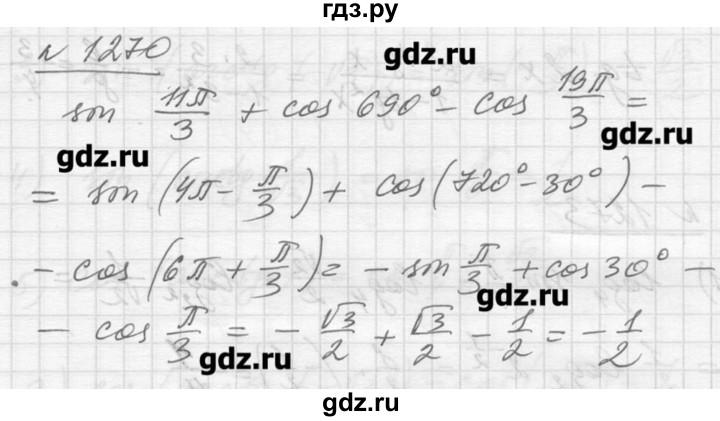 гдз.ру
№ 1270
gdz.ru
sin 11π/3 + cos 690° - cos 19π/3 =
gdz.ru
gdz.ru
= sin (4π - π/3) + cos (720° - 30°) -
- cos (6π + π/3) = - sin π/3 + cos 30° -
gdz.ru
- cos π/3 = - √3/2 + √3/2 - 1/2 = - 1/2
gdz.ru
gdz.ru